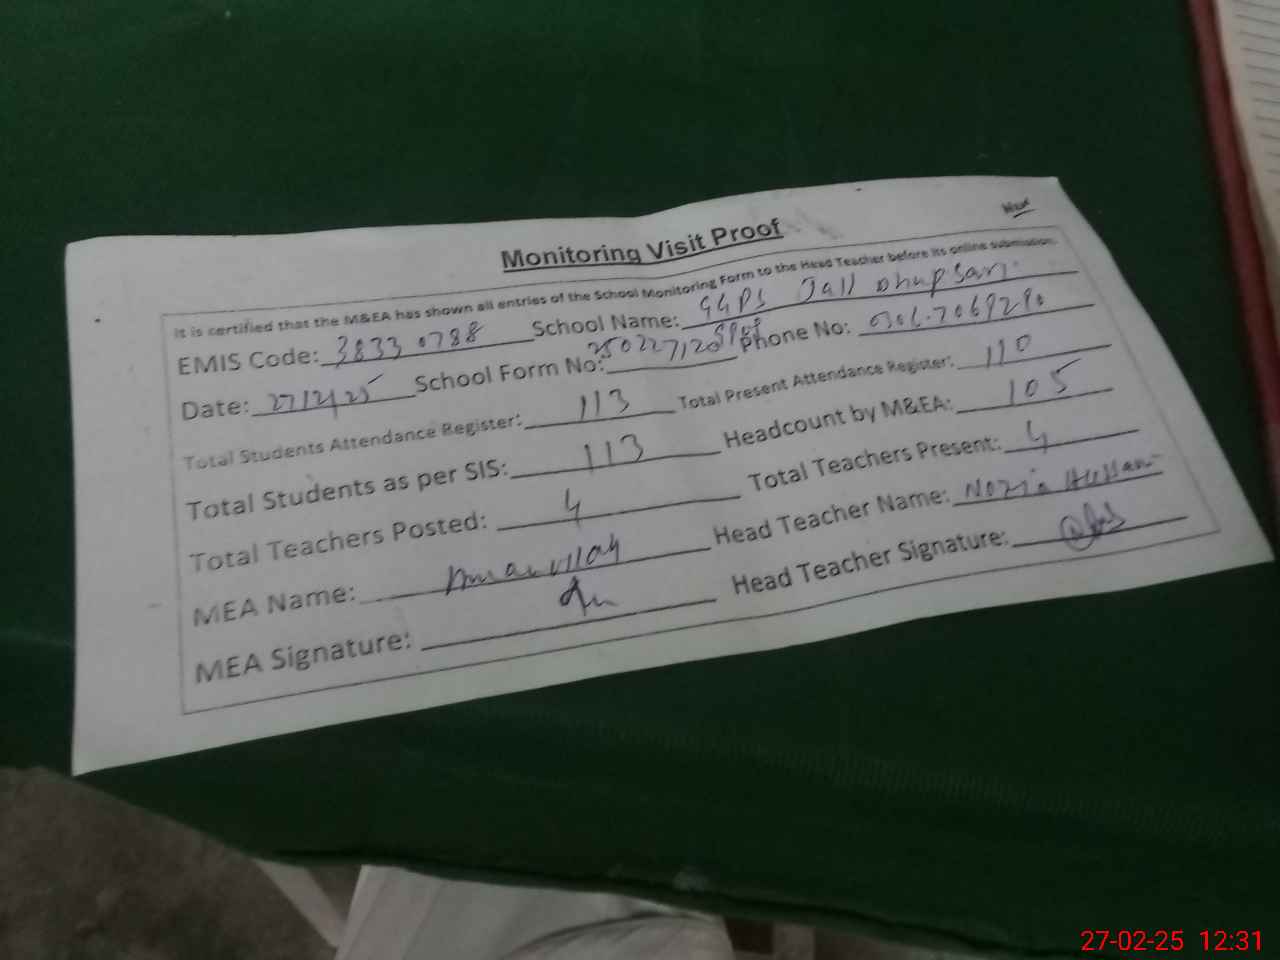 Monitoring Visit Proof
It is certified that the M&EA has shown all entries of the School Monitoring Form to the Head Teacher before its online submission.
EMIS Code: 38330788 School Name: GGPS Jall Dhup Sari
Date: 27/2/25 School Form No: Phone No: 0306-7069280
Total Students Attendance Register: 113 Total Present Attendance Register: 110
Total Students as per SIS: 113 Headcount by M&EA: 105
Total Teachers Posted: 4 Total Teachers Present: 4
MEA Name: Head Teacher Name: Nozia
MEA Signature: Head Teacher Signature:
27-02-25 12:31